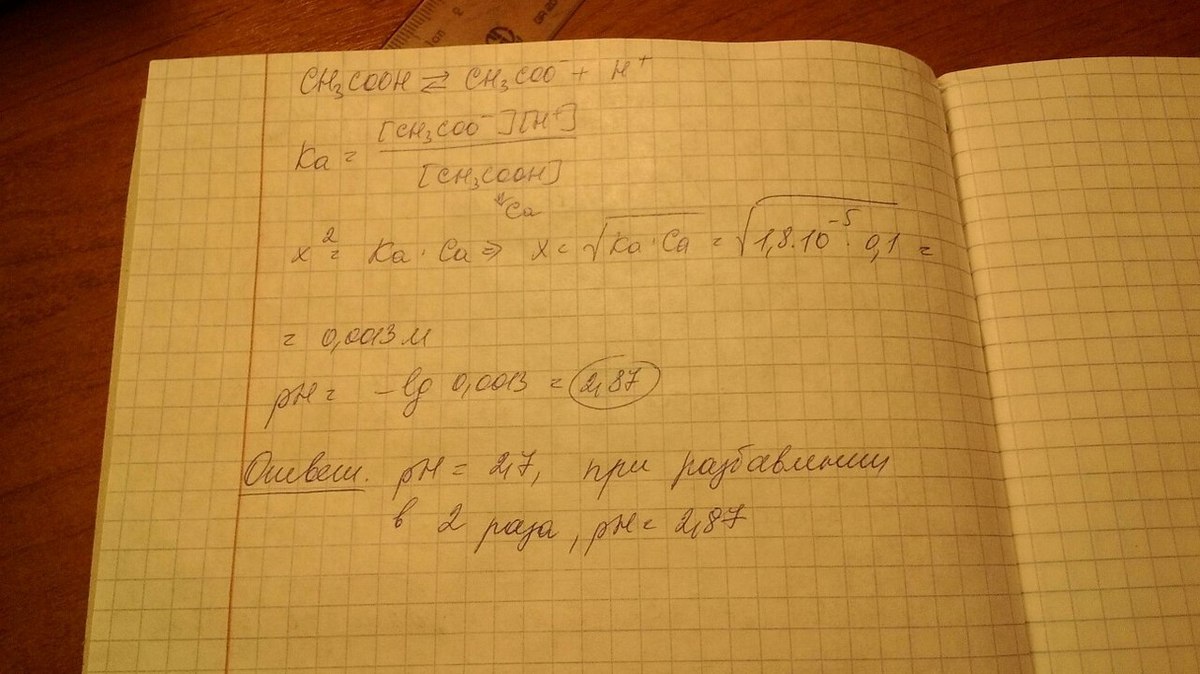 CH₃COOH ⇄ CH₃COO⁻ + H⁺
Ka = [CH₃COO⁻][H⁺] / [CH₃COOH]
Ca
x² = Ka · Ca ⇒ x = √Ka · Ca = √1,8·10⁻⁵ · 0,1 =
= 0,0013 м
pH = -lg 0,0013 = 2,87
Ответ. pH = 2,7, при разбавлении
в 2 раза, pH = 2,87